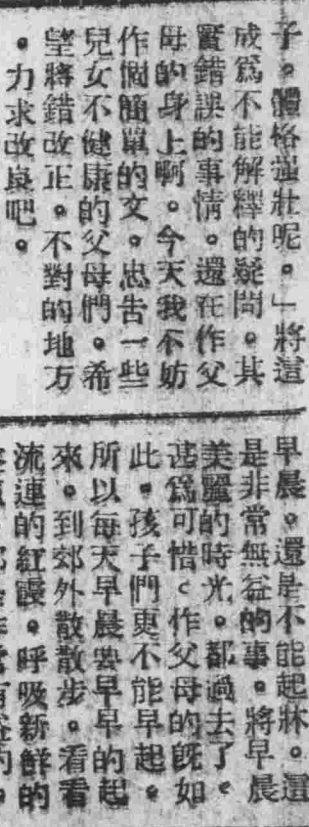 子。體格強壯呢。」將這
成爲不能解釋的疑問。其
實錯誤的事情。還在作父
母的身上啊。今天我不妨
作個簡單的文。忠告一些
兒女不健康的父母們。希
望將錯改正。不對的地方
。力求改良吧。
早晨。還是不能起牀。這
是非常無益的事。將早晨
美麗的時光。都過去了。
甚爲可惜。作父母的旣如
此。孩子們更不能早起。
所以每天早晨要早早的起
來。到郊外散散步。看看
流連的紅霞。呼吸新鮮的